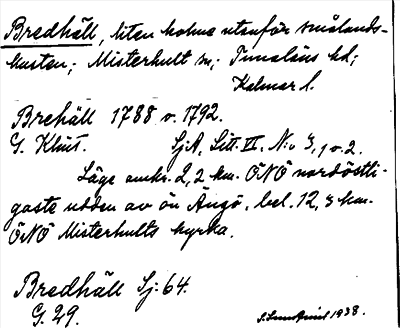 Bredhäll, liten holme utanför smålands-
kusten; Misterhult sn; Tunaläns hd;
Kalmar l.
Brehäll 1788 o. 1792.
G. Klint. Sj.A, Litt. VI, N:o 3, 1 o. 2.
Läge omkr. 2,2 km. ÖNÖ nordöstli-
gaste udden av ön Ängö, bel. 12,3 km.
ÖNÖ Misterhults kyrka.
Bredhäll Sj: 64.
G. 29.
1938.